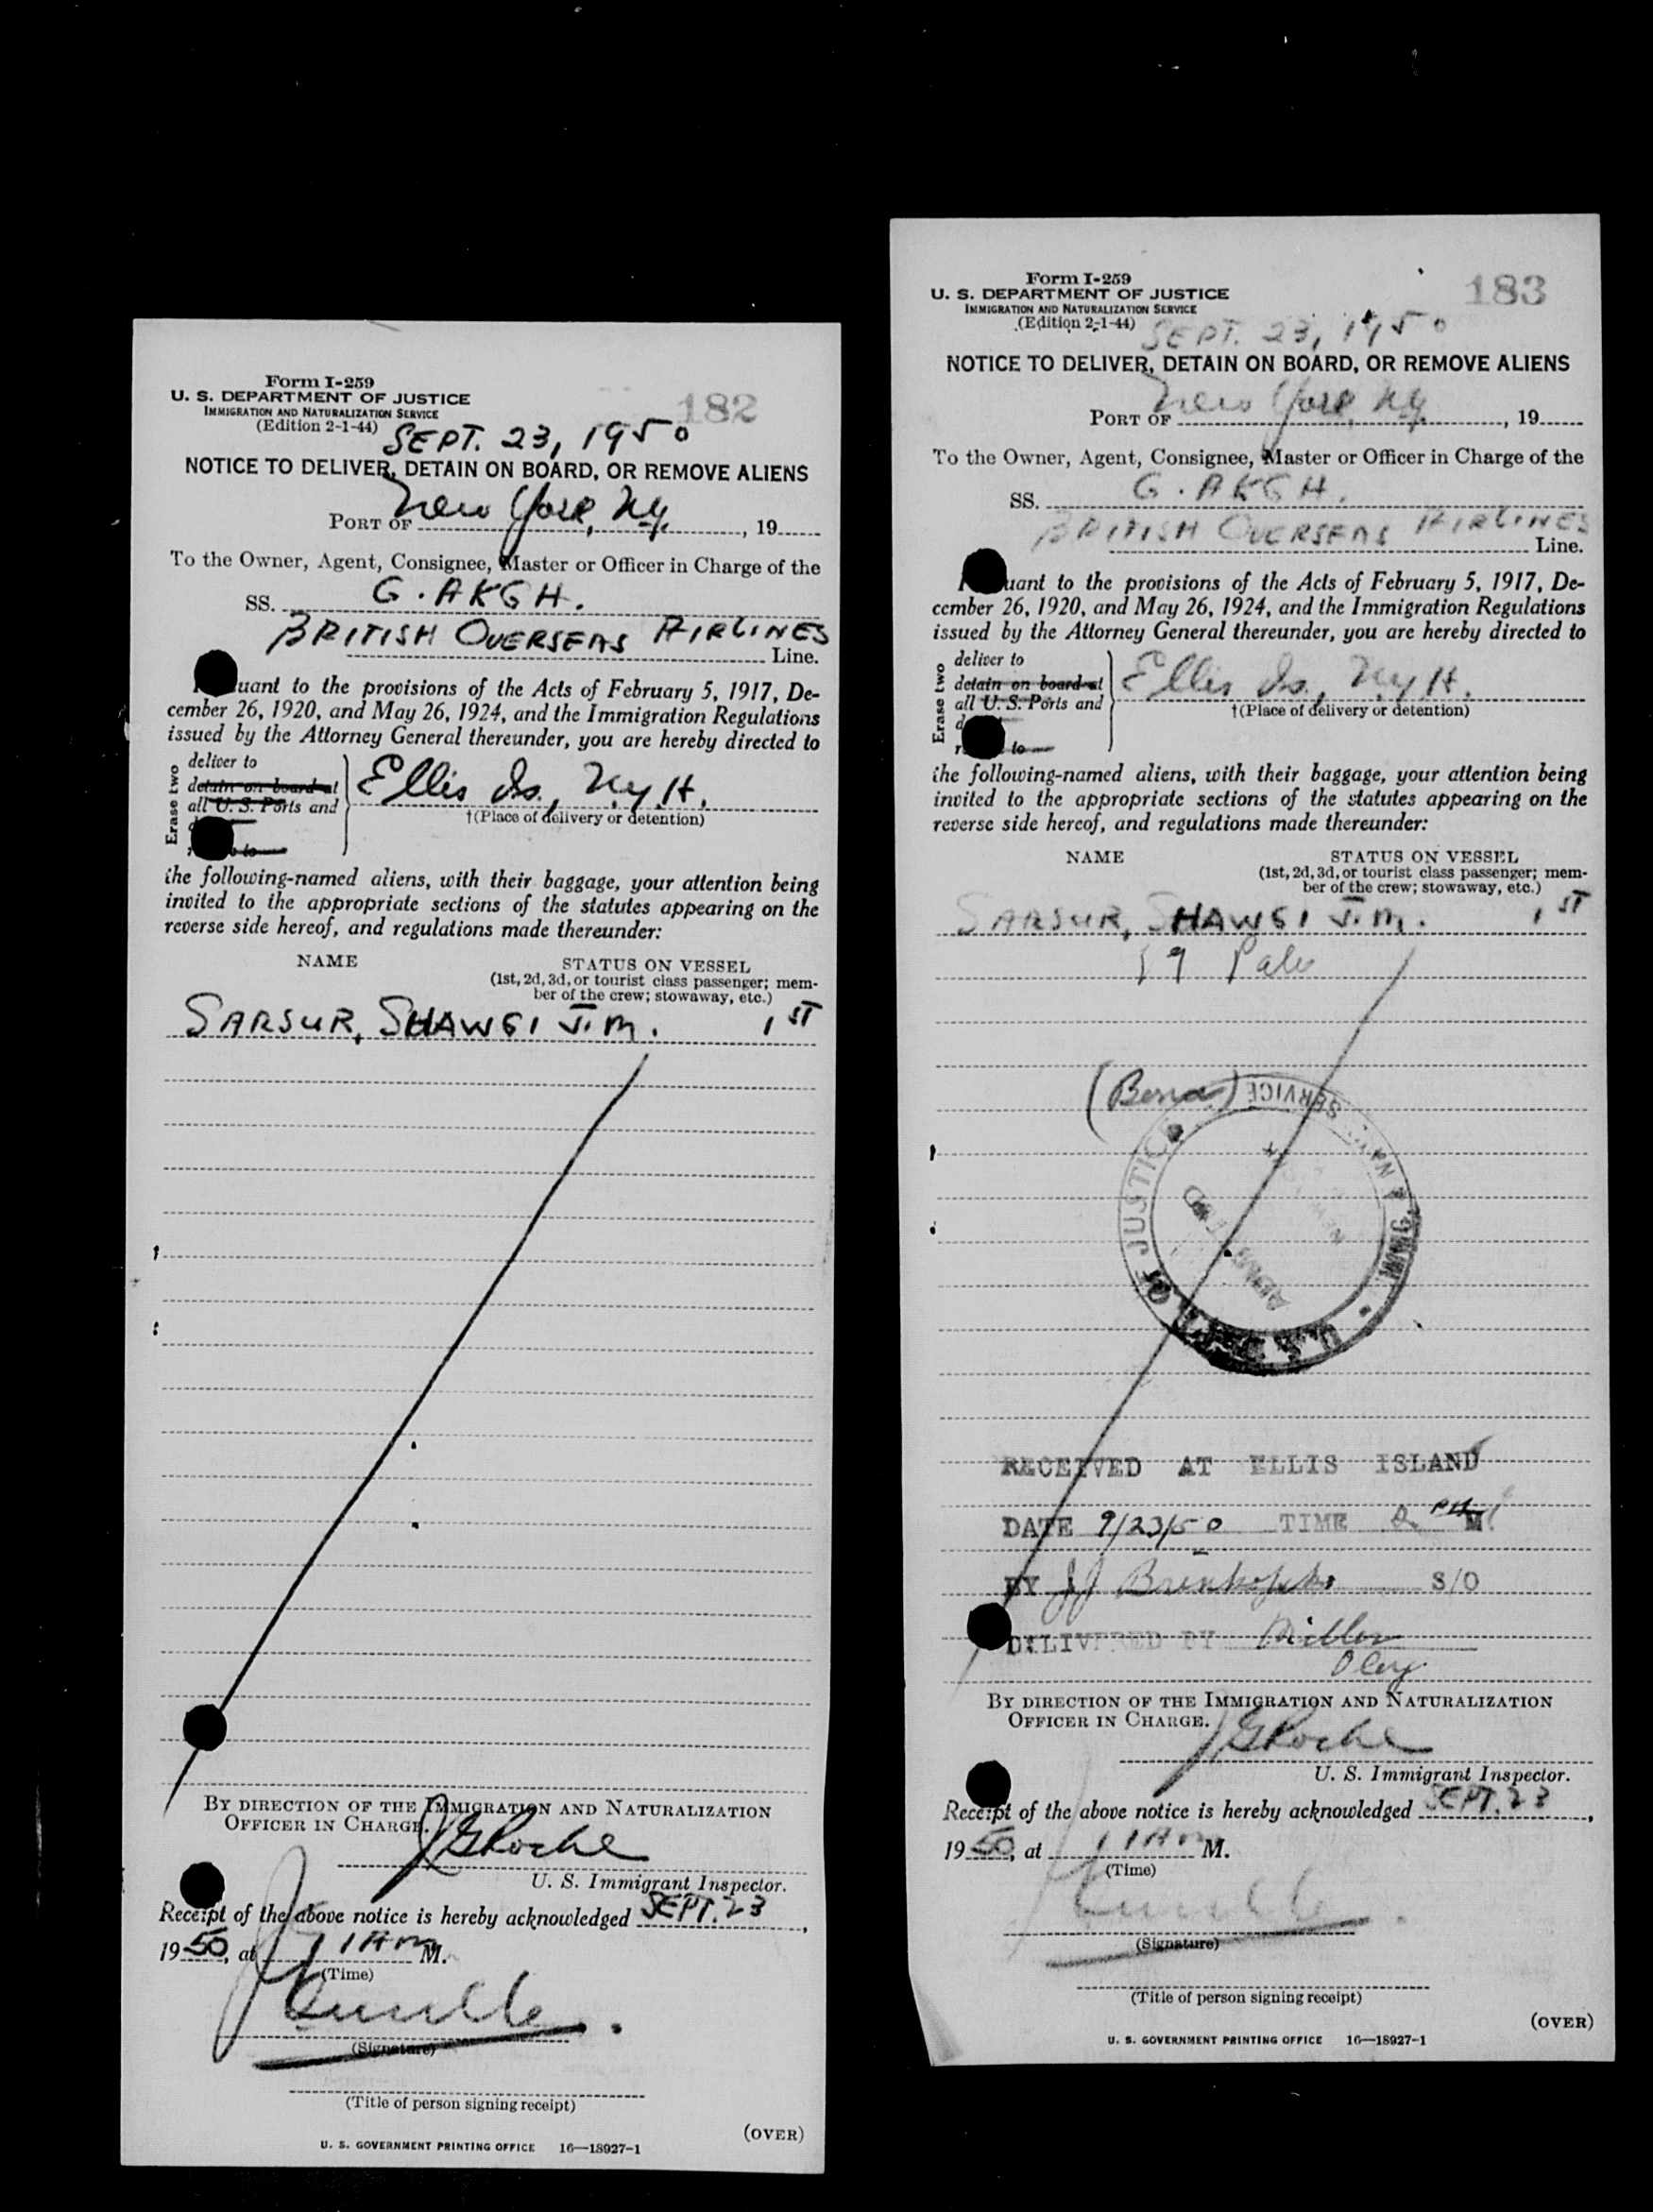 Form I-259
U. S. DEPARTMENT OF JUSTICE
IMMIGRATION AND NATURALIZATION SERVICE
(Edition 2-1-44)
182
SEPT. 23, 1950
NOTICE TO DELIVER, DETAIN ON BOARD, OR REMOVE ALIENS
PORT OF New York, N.Y. , 19
To the Owner, Agent, Consignee, Master or Officer in Charge of the
SS. G. AKGH.
BRITISH OVERSEAS AIRLINES
Line.
uant to the provisions of the Acts of February 5, 1917, De-
cember 26, 1920, and May 26, 1924, and the Immigration Regulations
issued by the Attorney General thereunder, you are hereby directed to
Erase two
deliver to
detain on board at
all U. S. Ports and
to
Ellis Is., N.Y.H.
†(Place of delivery or detention)
the following-named aliens, with their baggage, your attention being
invited to the appropriate sections of the statutes appearing on the
reverse side hereof, and regulations made thereunder:
NAME
STATUS ON VESSEL
(1st, 2d, 3d, or tourist class passenger; mem-
ber of the crew; stowaway, etc.)
SARSUR, SHAWGI J.M. 1ST
BY DIRECTION OF THE IMMIGRATION AND NATURALIZATION
OFFICER IN CHARGE.
JGRoche
U. S. Immigrant Inspector.
Receipt of the above notice is hereby acknowledged SEPT. 23,
1950, at 11AM M.
(Time)
(Signature)
(Title of person signing receipt)
(OVER)
U. S. GOVERNMENT PRINTING OFFICE 16—18927-1
Form I-259
U. S. DEPARTMENT OF JUSTICE
IMMIGRATION AND NATURALIZATION SERVICE
(Edition 2-1-44)
183
SEPT. 23, 1950
NOTICE TO DELIVER, DETAIN ON BOARD, OR REMOVE ALIENS
PORT OF New York, N.Y. , 19
To the Owner, Agent, Consignee, Master or Officer in Charge of the
SS. G. AKGH.
BRITISH OVERSEAS AIRLINES
Line.
uant to the provisions of the Acts of February 5, 1917, De-
cember 26, 1920, and May 26, 1924, and the Immigration Regulations
issued by the Attorney General thereunder, you are hereby directed to
Erase two
deliver to
detain on board at
all U. S. Ports and
to
Ellis Is., N.Y.H.
†(Place of delivery or detention)
the following-named aliens, with their baggage, your attention being
invited to the appropriate sections of the statutes appearing on the
reverse side hereof, and regulations made thereunder:
NAME
STATUS ON VESSEL
(1st, 2d, 3d, or tourist class passenger; mem-
ber of the crew; stowaway, etc.)
SARSUR, SHAWGI J.M. 1ST
19 Pale
U.S. DEPT. OF JUSTICE
IMMG. & NAT. SERVICE
ADMITTED
RECEIVED AT ELLIS ISLAND
DATE 9/23/50 TIME 2 PM M
BY JJ S/O
DELIVERED BY Miller
BY DIRECTION OF THE IMMIGRATION AND NATURALIZATION
OFFICER IN CHARGE.
JGRoche
U. S. Immigrant Inspector.
Receipt of the above notice is hereby acknowledged SEPT. 23,
1950, at 11AM M.
(Time)
(Signature)
(Title of person signing receipt)
(OVER)
U. S. GOVERNMENT PRINTING OFFICE 16—18927-1